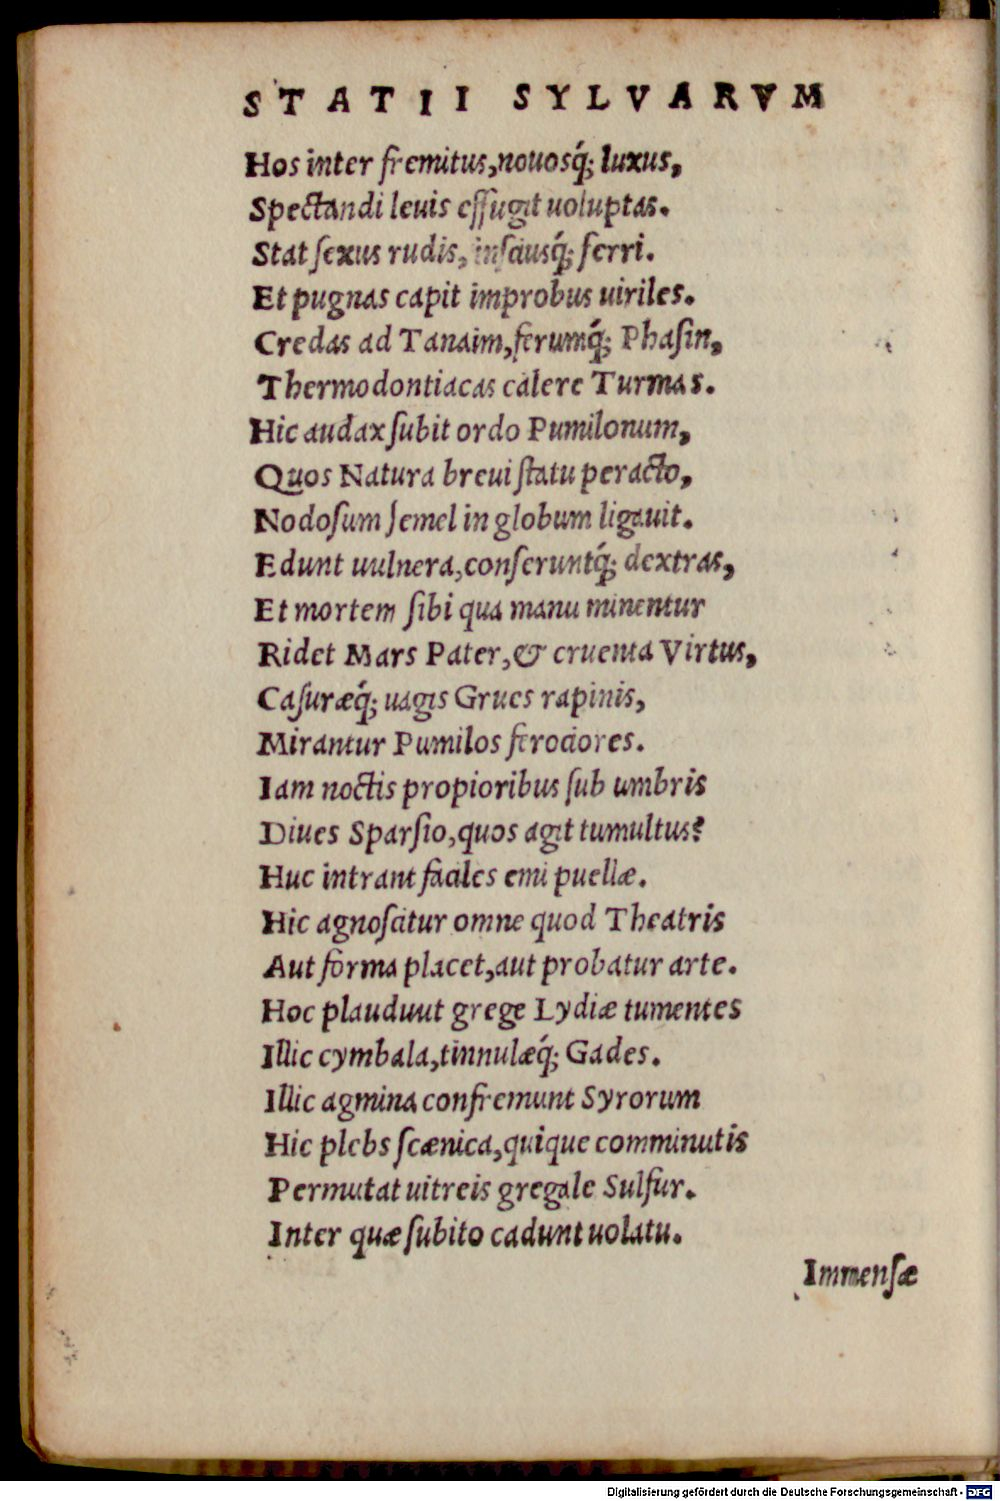 STATII SYLVARVM
Hos inter fremitus,nouosq́; luxus,
Spectandi leuis effugit uoluptas.
Stat ſexus rudis, inſciusq́; ferri.
Et pugnas capit improbus uiriles.
Credas ad Tanaim,ferumq́; Phaſin,
Thermodontiacas calere Turmas.
Hic audax ſubit ordo Pumilonum,
Quos Natura breui ſtatu peracto,
Nodoſum ſemel in globum ligauit.
Edunt uulnera,conſeruntq́; dextras,
Et mortem ſibi qua manu minentur
Ridet Mars Pater,& cruenta Virtus,
Caſuræq́; uagis Grues rapinis,
Mirantur Pumilos ferociores.
Iam noctis propioribus ſub umbris
Diues Sparſio,quos agit tumultus?
Huc intrant faciles emi puellæ.
Hic agnoſcitur omne quod Theatris
Aut forma placet,aut probatur arte.
Hoc plauduut grege Lydiæ tumentes
Illic cymbala,tinnulæq́; Gades.
Illic agmina confremunt Syrorum
Hic plebs ſcænica,quique comminutis
Permutat uitreis gregale Sulfur.
Inter quæ ſubito cadunt uolatu.
Immenſæ
Digitalisierung gefördert durch die Deutsche Forschungsgemeinschaft - DFG